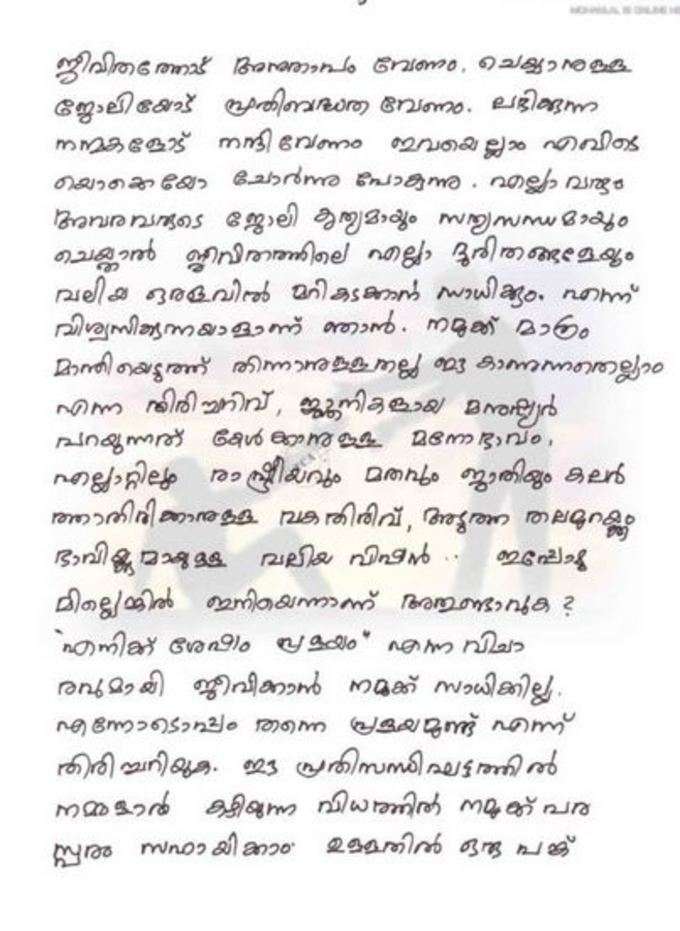 MOHANLAL IS ONLINE
ജീവിതത്തോട് അനുതാപം വേണം. ചെയ്യാനുള്ള
ജോലിയോട് പ്രതിബദ്ധത വേണം. ലഭിക്കുന്ന
നന്മകളോട് നന്ദി വേണം ഇവയെല്ലാം എവിടെ
യൊക്കെയോ ചോർന്നു പോകുന്നു. എല്ലാവരും
അവരവരുടെ ജോലി കൃത്യമായും സത്യസന്ധമായും
ചെയ്താൽ ജീവിതത്തിലെ എല്ലാ ദുരിതങ്ങളേയും
വലിയ ഒരളവിൽ മറികടക്കാൻ സാധിക്കും. എന്ന്
വിശ്വസിക്കുന്നയാളാണ് ഞാൻ. നമുക്ക് മാത്രം
മാന്തിയെടുത്ത് തിന്നാനുള്ളതല്ല ഈ കാണുന്നതെല്ലാം
എന്ന തിരിച്ചറിവ്, ജ്ഞാനികളായ മനുഷ്യർ
പറയുന്നത് കേൾക്കാനുള്ള മനോഭാവം,
എല്ലാറ്റിലും രാഷ്ട്രീയവും മതവും ജാതിയും കലർ
ത്താതിരിക്കാനുള്ള വകതിരിവ്, അടുത്ത തലമുറയ്ക്കും
ഭാവിയ്ക്കുമായുള്ള വലിയ വിഷൻ .. ഇപ്പോഴു
മില്ലെങ്കിൽ ഇനിയെന്നാണ് അതുണ്ടാവുക ?
"എനിക്ക് ശേഷം പ്രളയം" എന്ന വിചാ
രവുമായി ജീവിക്കാൻ നമുക്ക് സാധിക്കില്ല.
എന്നോടൊപ്പം തന്നെ പ്രളയമുണ്ട് എന്ന്
തിരിച്ചറിയുക. ഈ പ്രതിസന്ധിഘട്ടത്തിൽ
നമ്മളാൽ കഴിയുന്ന വിധത്തിൽ നമുക്ക് പര
സ്പരം സഹായിക്കാം. ഉള്ളതിൽ ഒരു പങ്ക്